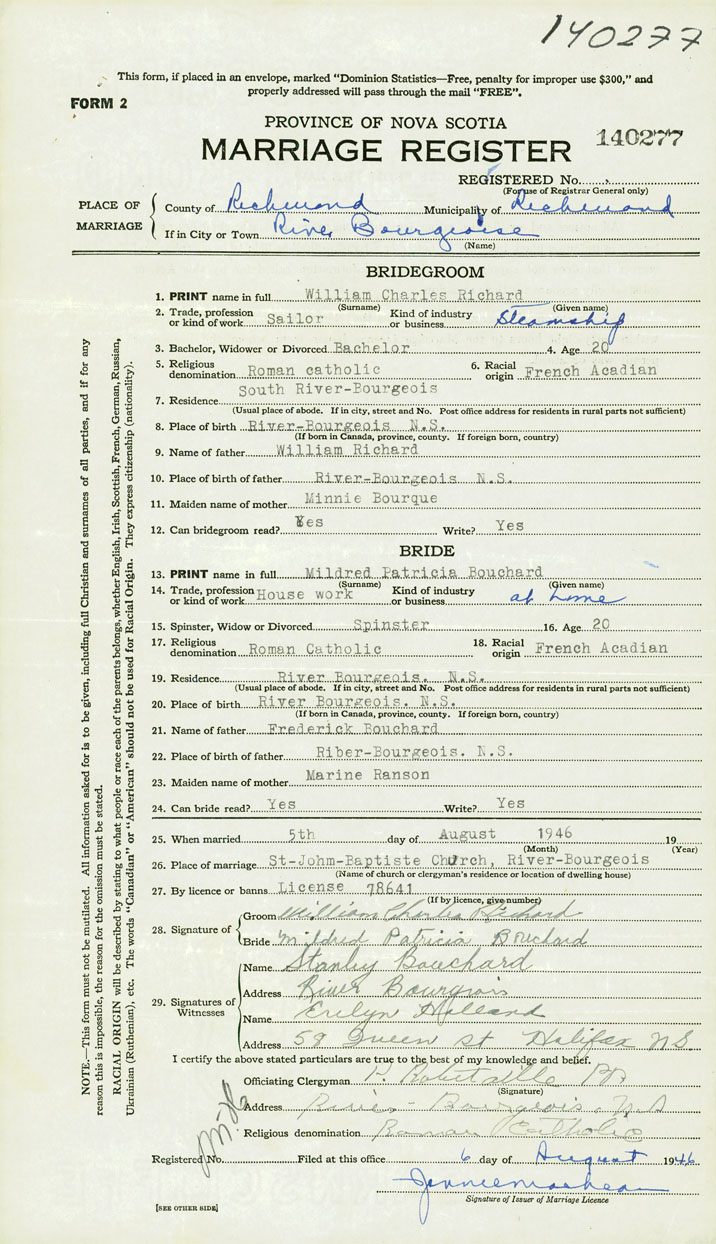 140277
This form, if placed in an envelope, marked "Dominion Statistics—Free, penalty for improper use $300," and
properly addressed will pass through the mail "FREE".
FORM 2
PROVINCE OF NOVA SCOTIA
MARRIAGE REGISTER
140277
REGISTERED No.
(For use of Registrar General only)
PLACE OF MARRIAGE
County of Richmond Municipality of Richmond
If in City or Town River Bourgeoise
(Name)
BRIDEGROOM
1. PRINT name in full William Charles Richard
(Surname) (Given name)
2. Trade, profession or kind of work Sailor Kind of industry or business Steamship
3. Bachelor, Widower or Divorced Bachelor 4. Age 20
5. Religious denomination Roman catholic 6. Racial origin French Acadian
7. Residence South River-Bourgeois
(Usual place of abode. If in city, street and No. Post office address for residents in rural parts not sufficient)
8. Place of birth River-Bourgeois N.S.
(If born in Canada, province, county. If foreign born, country)
9. Name of father William Richard
10. Place of birth of father River-Bourgeois N.S.
11. Maiden name of mother Minnie Bourque
12. Can bridegroom read? Yes Write? Yes
BRIDE
13. PRINT name in full Mildred Patricia Bouchard
(Surname) (Given name)
14. Trade, profession or kind of work House work Kind of industry or business at home
15. Spinster, Widow or Divorced Spinster 16. Age 20
17. Religious denomination Roman Catholic 18. Racial origin French Acadian
19. Residence River Bourgeois. N.S.
(Usual place of abode. If in city, street and No. Post office address for residents in rural parts not sufficient)
20. Place of birth River Bourgeois. N.S.
(If born in Canada, province, county. If foreign born, country)
21. Name of father Frederick Bouchard
22. Place of birth of father Riber-Bourgeois. N.S.
23. Maiden name of mother Marine Ranson
24. Can bride read? Yes Write? Yes
25. When married 5th day of August 1946 19
(Month) (Year)
26. Place of marriage St-Johm-Baptiste Church, River-Bourgeois
(Name of church or clergyman's residence or location of dwelling house)
27. By licence or banns License 78641
(If by licence, give number)
28. Signature of
Groom William Charles Richard
Bride Mildred Patricia Bouchard
29. Signatures of Witnesses
Name Stanley Bouchard
Address River Bourgeois
Name Evelyn Holland
Address 58 Queen st Halifax N S
I certify the above stated particulars are true to the best of my knowledge and belief.
Officiating Clergyman P. Robitaille
(Signature)
Address River-Bourgeois, N.S
Religious denomination Roman Catholic
Registered No. Filed at this office 6 day of August 1946
Signature of Issuer of Marriage Licence
[SEE OTHER SIDE]
NOTE.—This form must not be mutilated. All information asked for is to be given, including full Christian and surnames of all parties, and if for any
reason this is impossible, the reason for the omission must be stated.
RACIAL ORIGIN will be described by stating to what people or race each of the parents belongs, whether English, Irish, Scottish, French, German, Russian,
Ukrainian (Ruthenian), etc. The words "Canadian" or "American" should not be used for Racial Origin. They express citizenship (nationality).